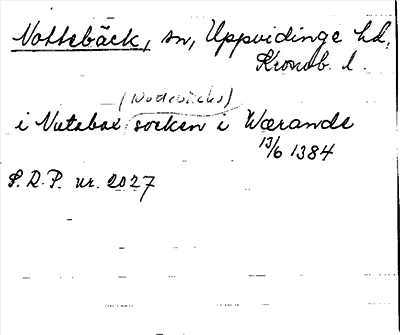 Nottebäck, sn, Uppvidinge hd,
Kronob. l.
(Nottebäcks)
i Nutabax socken i Wærande
13/6 1384
S.R.P. nr. 2027